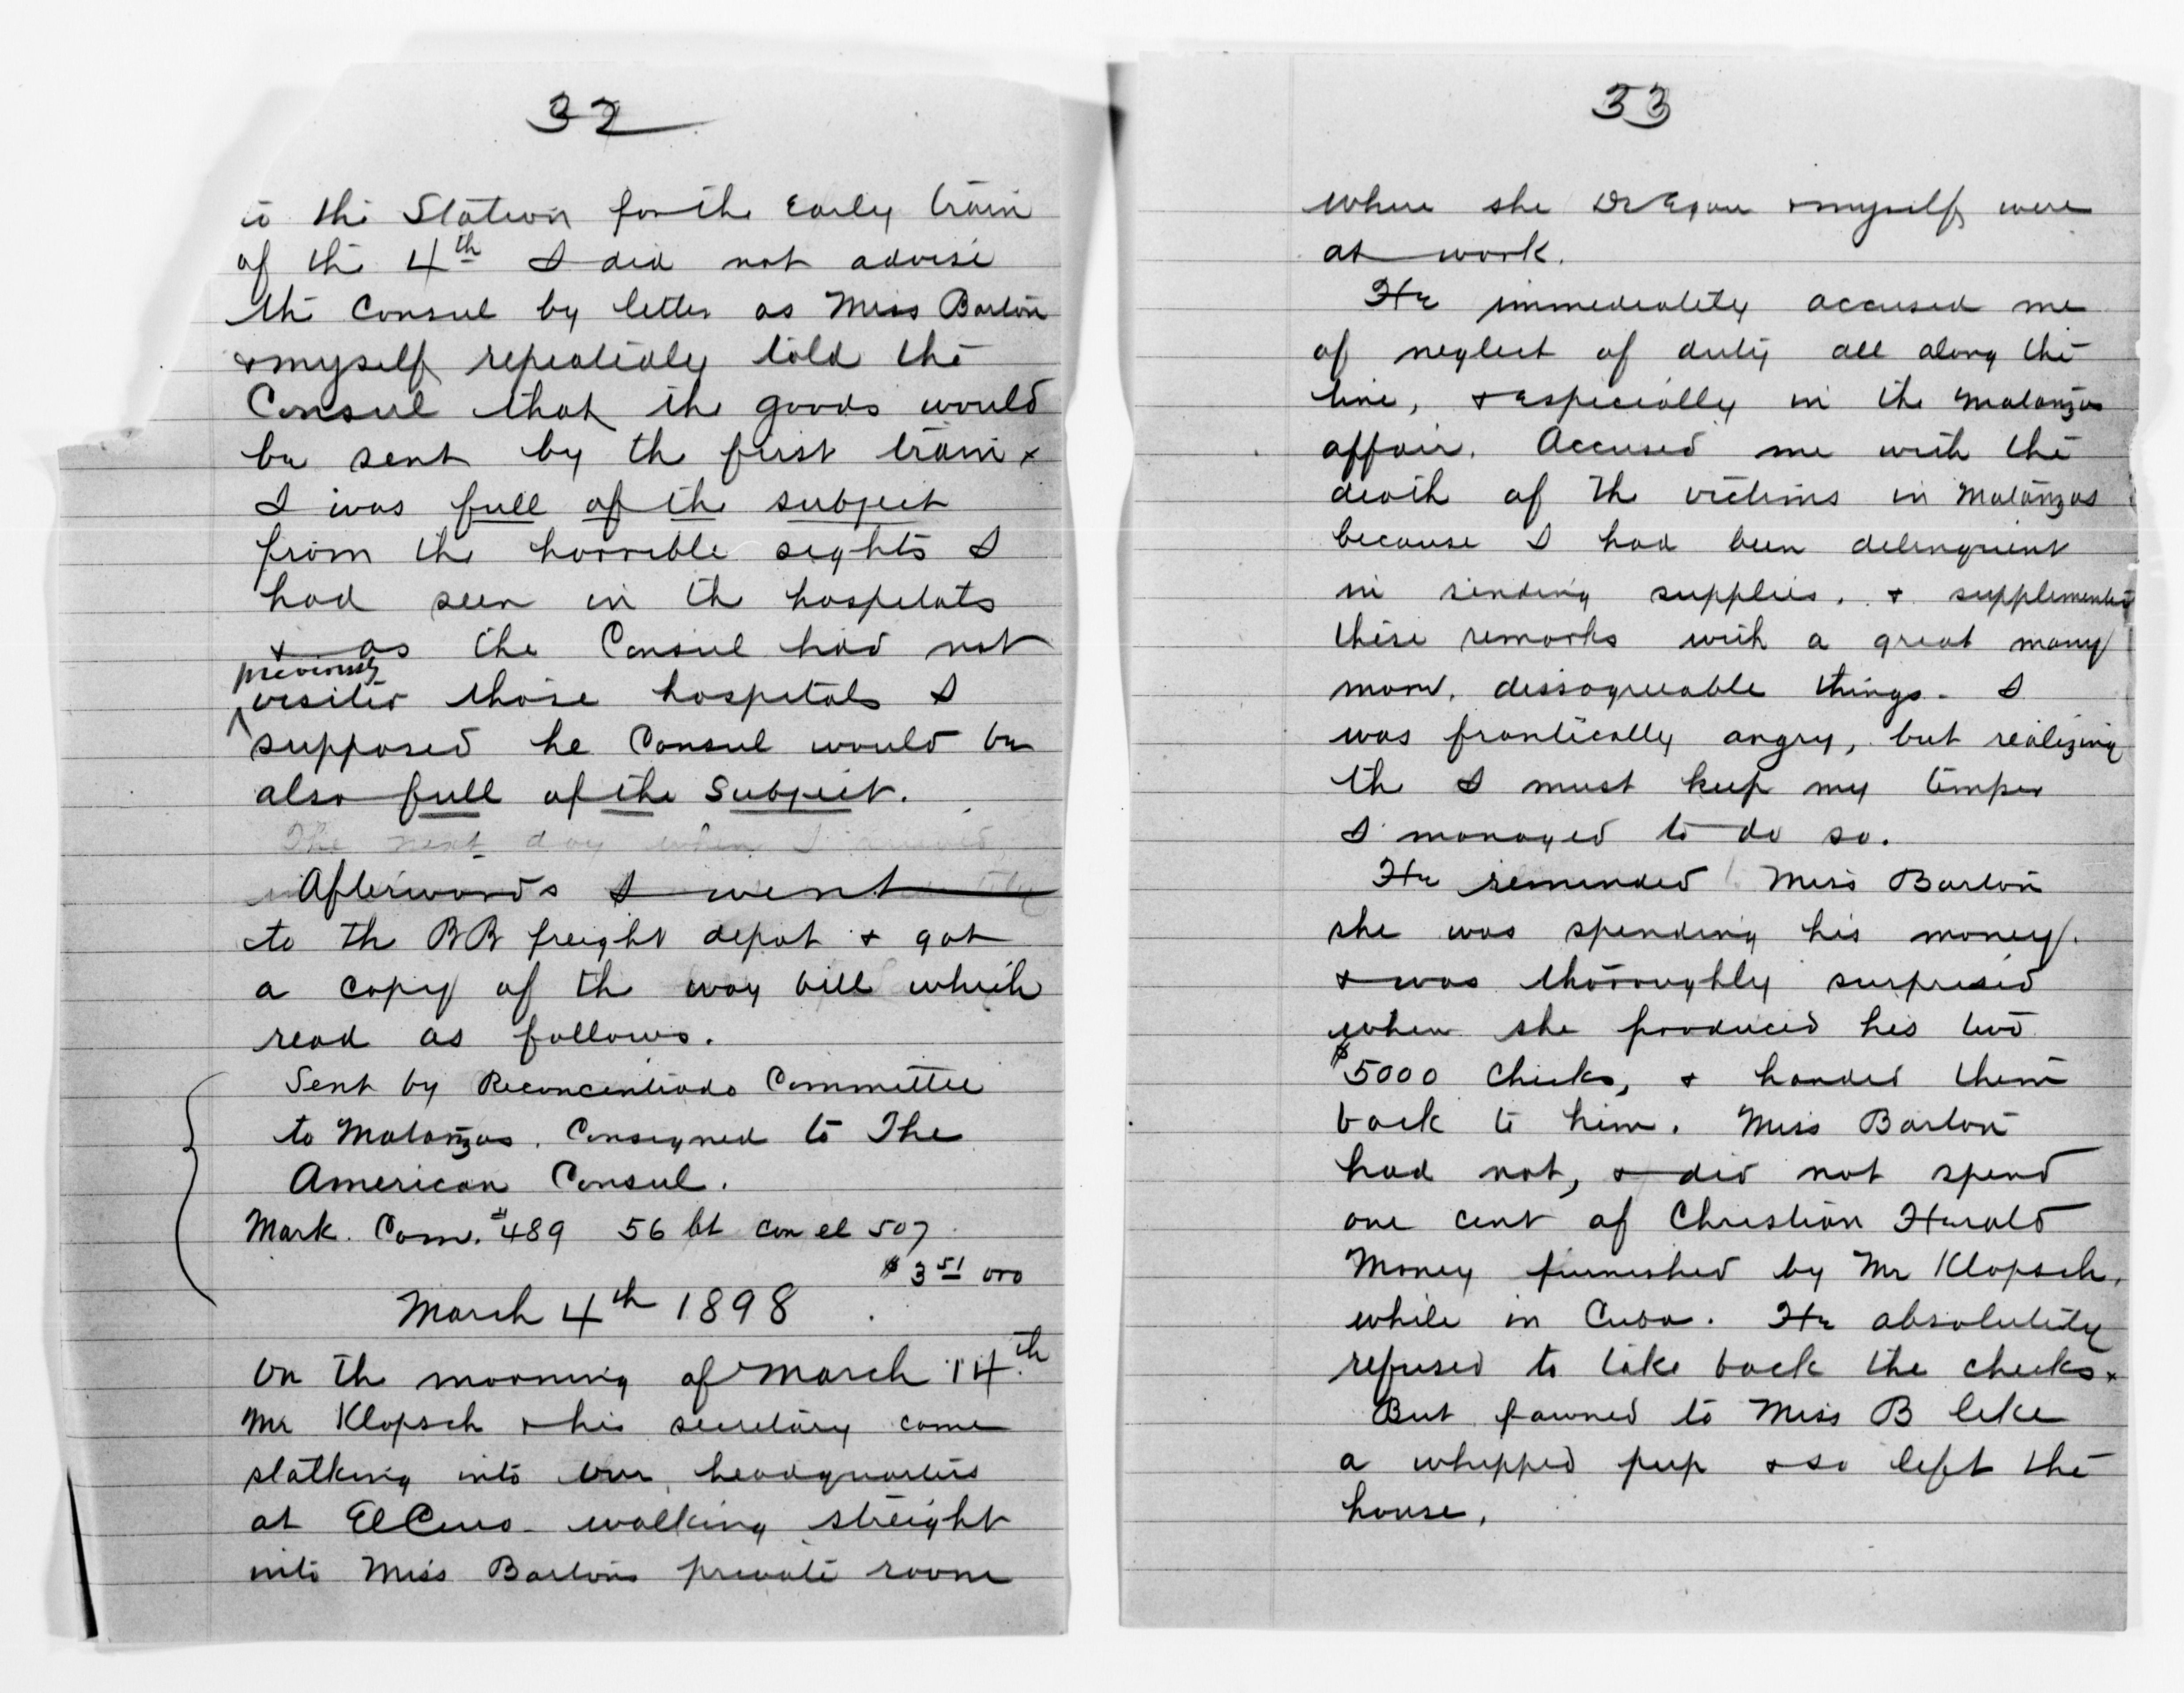 32
to the Station for the Early train
of the 4th I did not advise
the Consul by letter as Miss Barton
& myself repeatidly told the
Consul that the goods would
be sent by the first train &
I was full of the subject
from the horrible sights I
had seen in the hospitals
& as the Consul had not
previously
visited those hospitals I
supposed he Consul would be
also full of the Subject.
The next day when I arrived
Afterwards I went
to the RR freight depot & got
a copy of the way bill which
read as follows.
Sent by Reconcentrado Committee
to Matanzas. Consigned to The
American Consul.
Mark. Com. #489 56 bt con el 507
$3 51 oro
March 4th 1898
On the morning of March 14th
Mr Klopsch & his secretary came
stalking into our headquarters
at El Cerro - walking streight
into Miss Bartons private room
33
where she Dr Egan & myself were
at work.
He immediately accused me
of neglect of duty all along the
line, & especially in the Matanzas
affair. Accused me with the
death of the victims in Matanzas
because I had been delenquent
in sending supplies. & supplemented
these remarks with a great many
more, dissagreeable things - I
was frantically angry, but realizing
th I must keep my temper
I managed to do so.
He reminded Miss Barton
she was spending his money.
& was thoroughly surprised
when she produced his two
$5000 checks, & handed them
back to him. Miss Barton
had not, & did not spend
one cent of Christian Herald
Money furnished by Mr Klopsch,
while in Cuba. He absolutely
refused to take back the checks &
But fawned to Miss B like
a whipped pup & so left the
house.